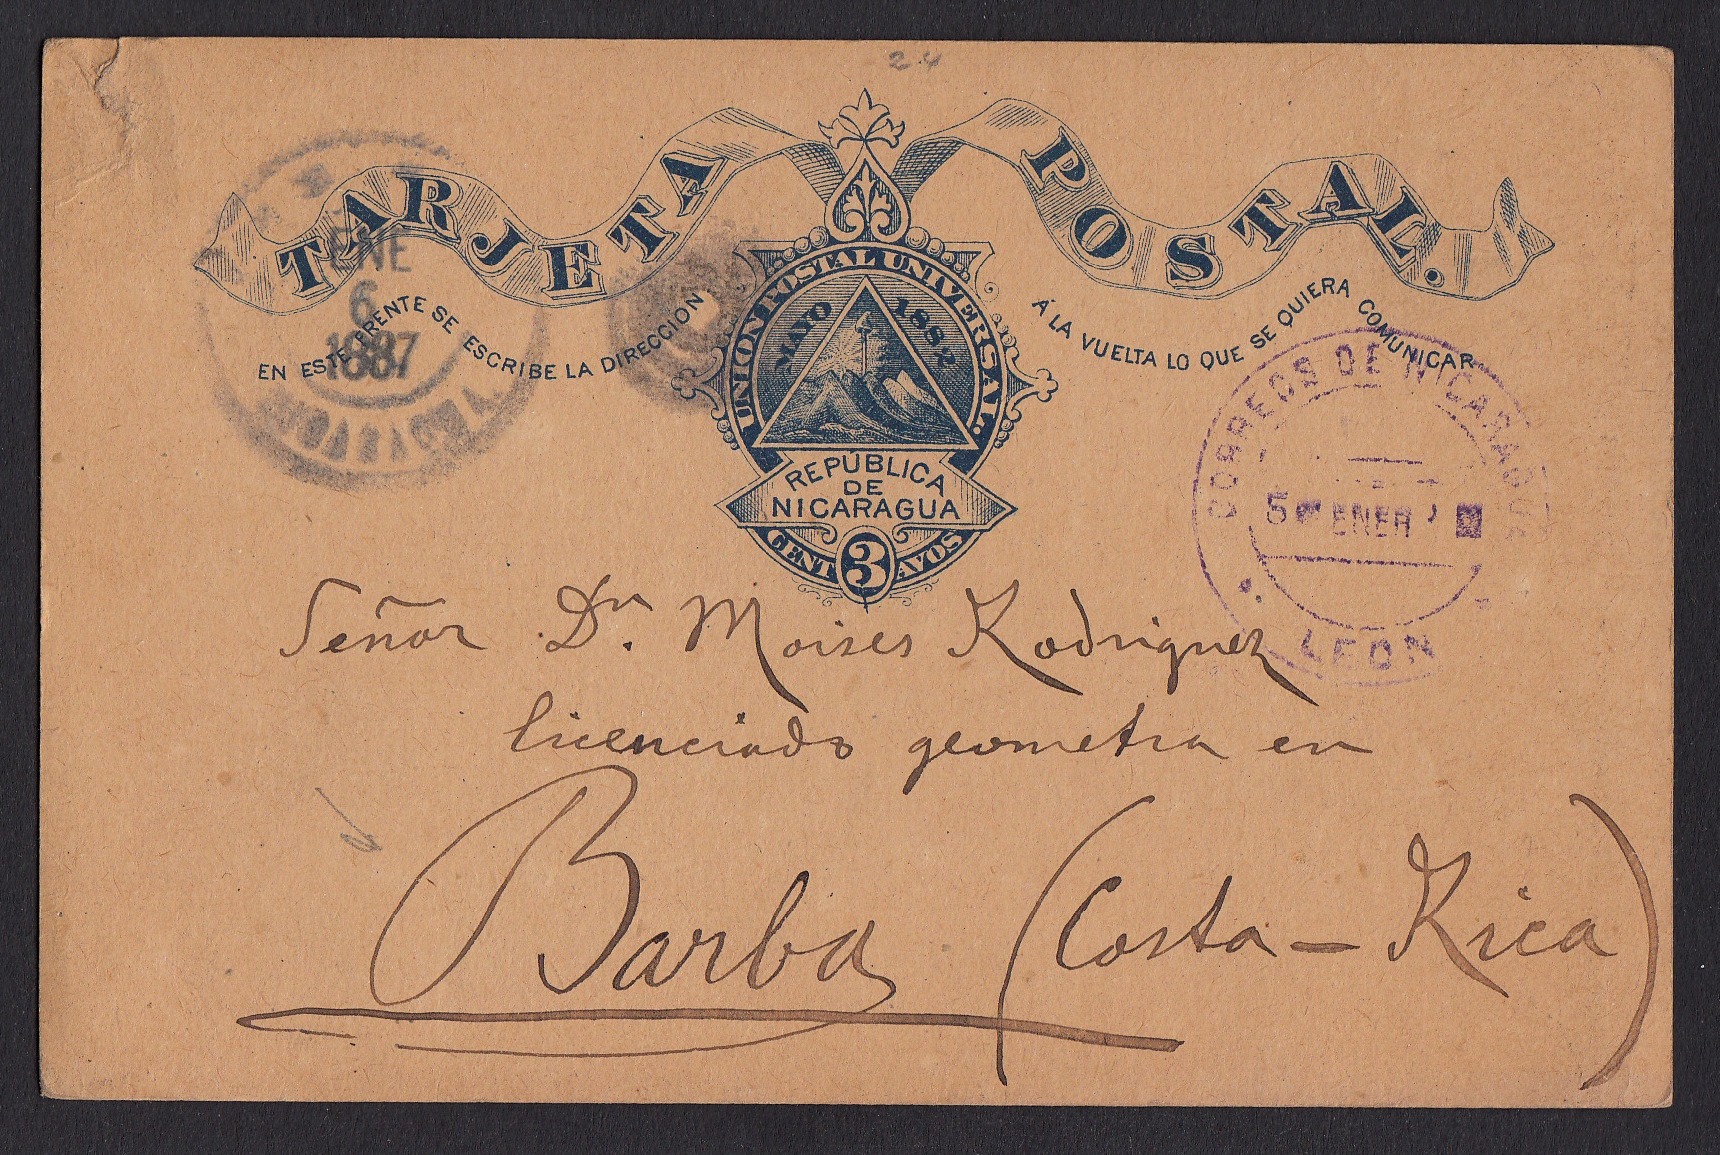 TARJETA POSTAL.
EN ESTE FRENTE SE ESCRIBE LA DIRECCION
Á LA VUELTA LO QUE SE QUIERA COMUNICAR
UNION POSTAL UNIVERSAL.
MAYO 1882
REPÚBLICA
DE
NICARAGUA
3
CENTAVOS
ENE
6
1887
NICARAGUA
CORREOS DE NICARAGUA
5 ENER
LEON
Señor Dn. Moises Rodriguez
licenciado geometra en
Barba (Costa-Rica)